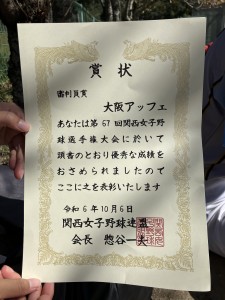 賞状
審判員賞
大阪アッフェ
あなたは第67回関西女子野
球選手権大会に於いて
頭書のとおり優秀な成績を
おさめられましたので
ここに之を表彰いたします
令和6年10月6日
関西女子野球連盟
会長 惣谷一夫